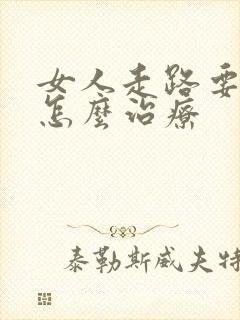 女人走路要
怎麼治療
泰勒斯威夫特